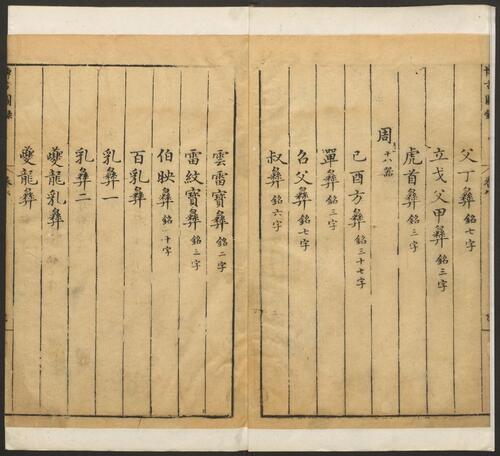 父丁彝銘七字
立戈父甲彝銘三字
虎首彝銘三字
周
己酉方彝銘三十七字
單彝銘三字
召父彝銘七字
叔彝銘六字
雲雷寶彝銘二字
雷紋寶彝銘三字
伯映彝銘一十字
百乳彝
乳彝一
乳彝二
夔龍乳彝
夔龍彝